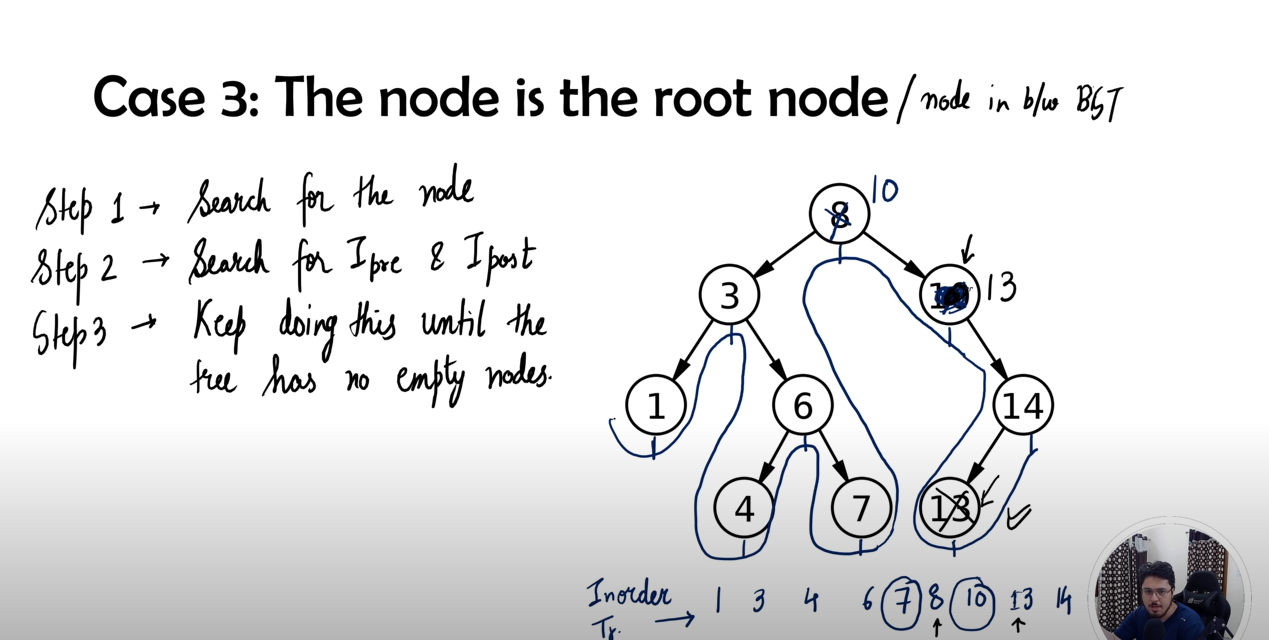 Case 3: The node is the root node / node in b/w BST
Step 1 → Search for the node
Step 2 → Search for Ipre & Ipost
Step 3 → Keep doing this until the
tree has no empty nodes.
8 10
3 13
1 6 14
4 7 13
Inorder Tr. → 1 3 4 6 7 8 10 13 14